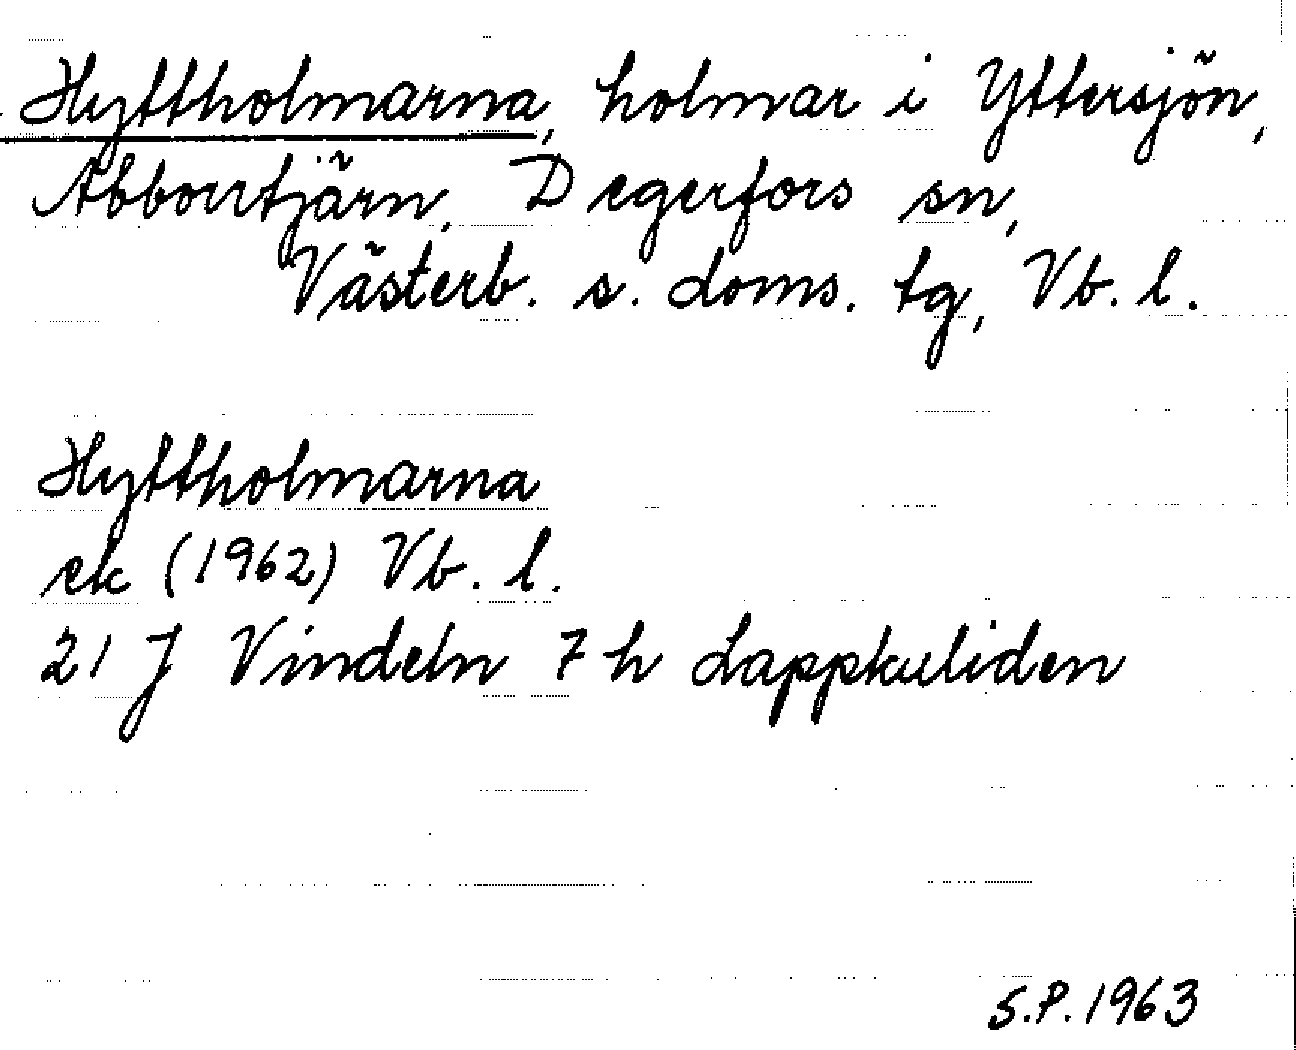 Hyttholmarna, holmar i Yttersjön,
Abborrtjärn, Degerfors sn,
Västerb. s. doms. tg, Vb. l.
Hyttholmarna
ek (1962) Vb. l.
21 J Vindeln 7 h Lappkuliden
S.P. 1963